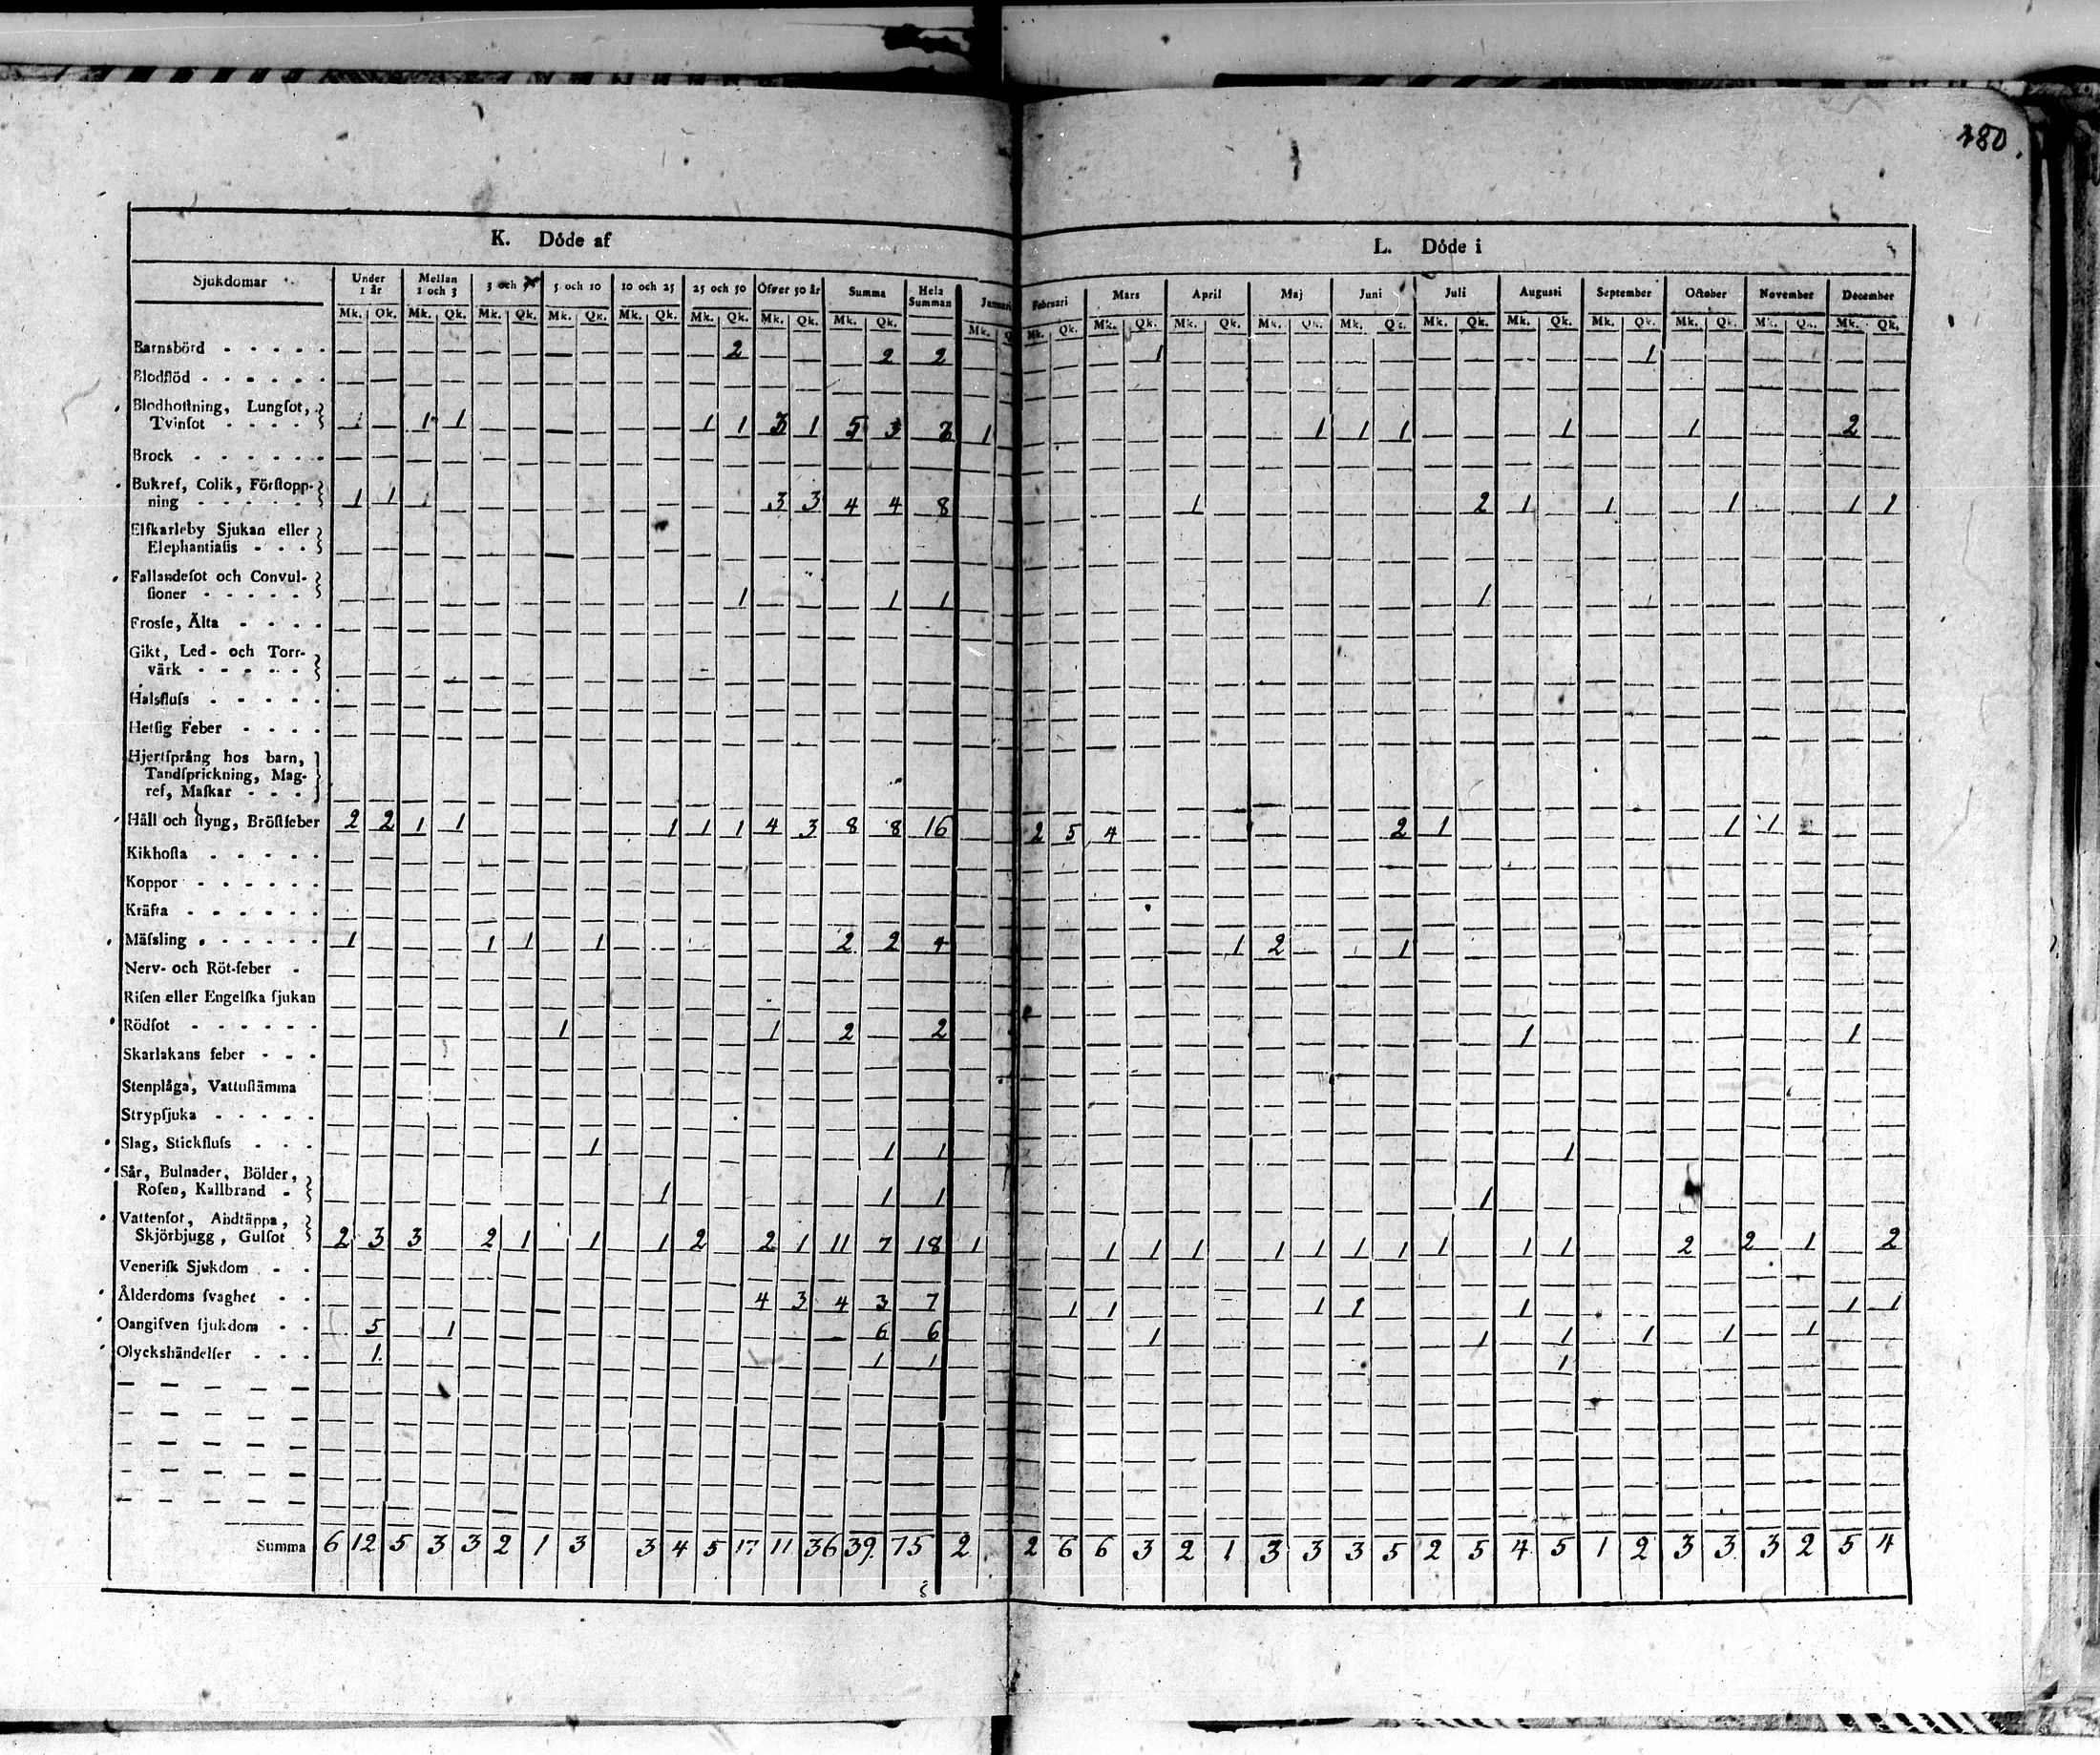 180.
K. Döde af
L. Döde i
Sjukdomar | Under 1 år | Mellan 1 och 3 | 3 och | 5 och 10 | 10 och 25 | 25 och 50 | Öfver 50 år | Summa | Hela Summan | Januari | Februari | Mars | April | Maj | Juni | Juli | Augusti | September | October | November | December
Mk. Qk. Mk. Qk. Mk. Qk. Mk. Qk. Mk. Qk. Mk. Qk. Mk. Qk. Mk. Qk. Mk. Mk. Qk. Mk. Qk. Mk. Qk. Mk. Qk. Mk. Qk. Mk. Qk. Mk. Qk. Mk. Qk. Mk. Qk. Mk. Qk. Mk. Qk.
Barnsbörd - - - - - 2 2 2 1 1
Blodflöd - - - - - -
Blodhoſtning, Lungſot,
Tvinſot - - - - 1 1 1 1 3 1 5 3 1 1 1 1 1 1 2
Brock - - - - - -
Bukref, Colik, Förſtopp-
ning - - - - - 1 1 3 3 4 4 8 1 2 1 1 1 1 1
Elſkarleby Sjukan eller
Elephantiaſis - - -
Fallandeſot och Convul-
ſioner - - - - - 1 1 1 1
Frosſe, Älta - - - -
Gikt, Led- och Torr-
värk - - - - -
Halsfluſs - - - - -
Hetſig Feber - - - -
Hjertſprång hos barn,
Tandſprickning, Mag-
ref, Maſkar - - -
Håll och ſtyng, Bröſtfeber 2 2 1 1 1 1 1 4 3 8 8 16 2 5 4 2 1 1 1
Kikhoſta - - - - -
Koppor - - - - - -
Kräfta - - - - - -
Mäſsling - - - - - - 1 1 1 1 2 2 4 1 2 1
Nerv- och Röt-feber -
Riſen eller Engelſka ſjukan
Rödſot - - - - - - 1 1 2 2 1 1
Skarlakans feber - - -
Stenplåga, Vattuſtämma
Strypſjuka - - - - -
Slag, Stickfluſs - - - 1 1 1 1
Sår, Bulnader, Bölder,
Roſen, Kallbrand - 1 1 1 1
Vattenſot, Andtäppa,
Skjörbjugg, Gulſot 2 3 3 2 1 1 1 2 2 1 11 7 18 1 1 1 1 1 1 1 1 1 1 1 2 2 1 2
Veneriſk Sjukdom - -
Ålderdoms ſvaghet - - 4 3 4 3 7 1 1 1 1 1 1 1
Oangifven ſjukdom - - 5 1 6 6 1 1 1 1 1 1
Olyckshändelſer - - - 1 1 1 1
Summa 6 12 5 3 3 2 1 3 3 4 5 17 11 36 39. 75 2 2 6 6 3 2 1 3 3 3 5 2 5 4 5 1 2 3 3 3 2 5 4